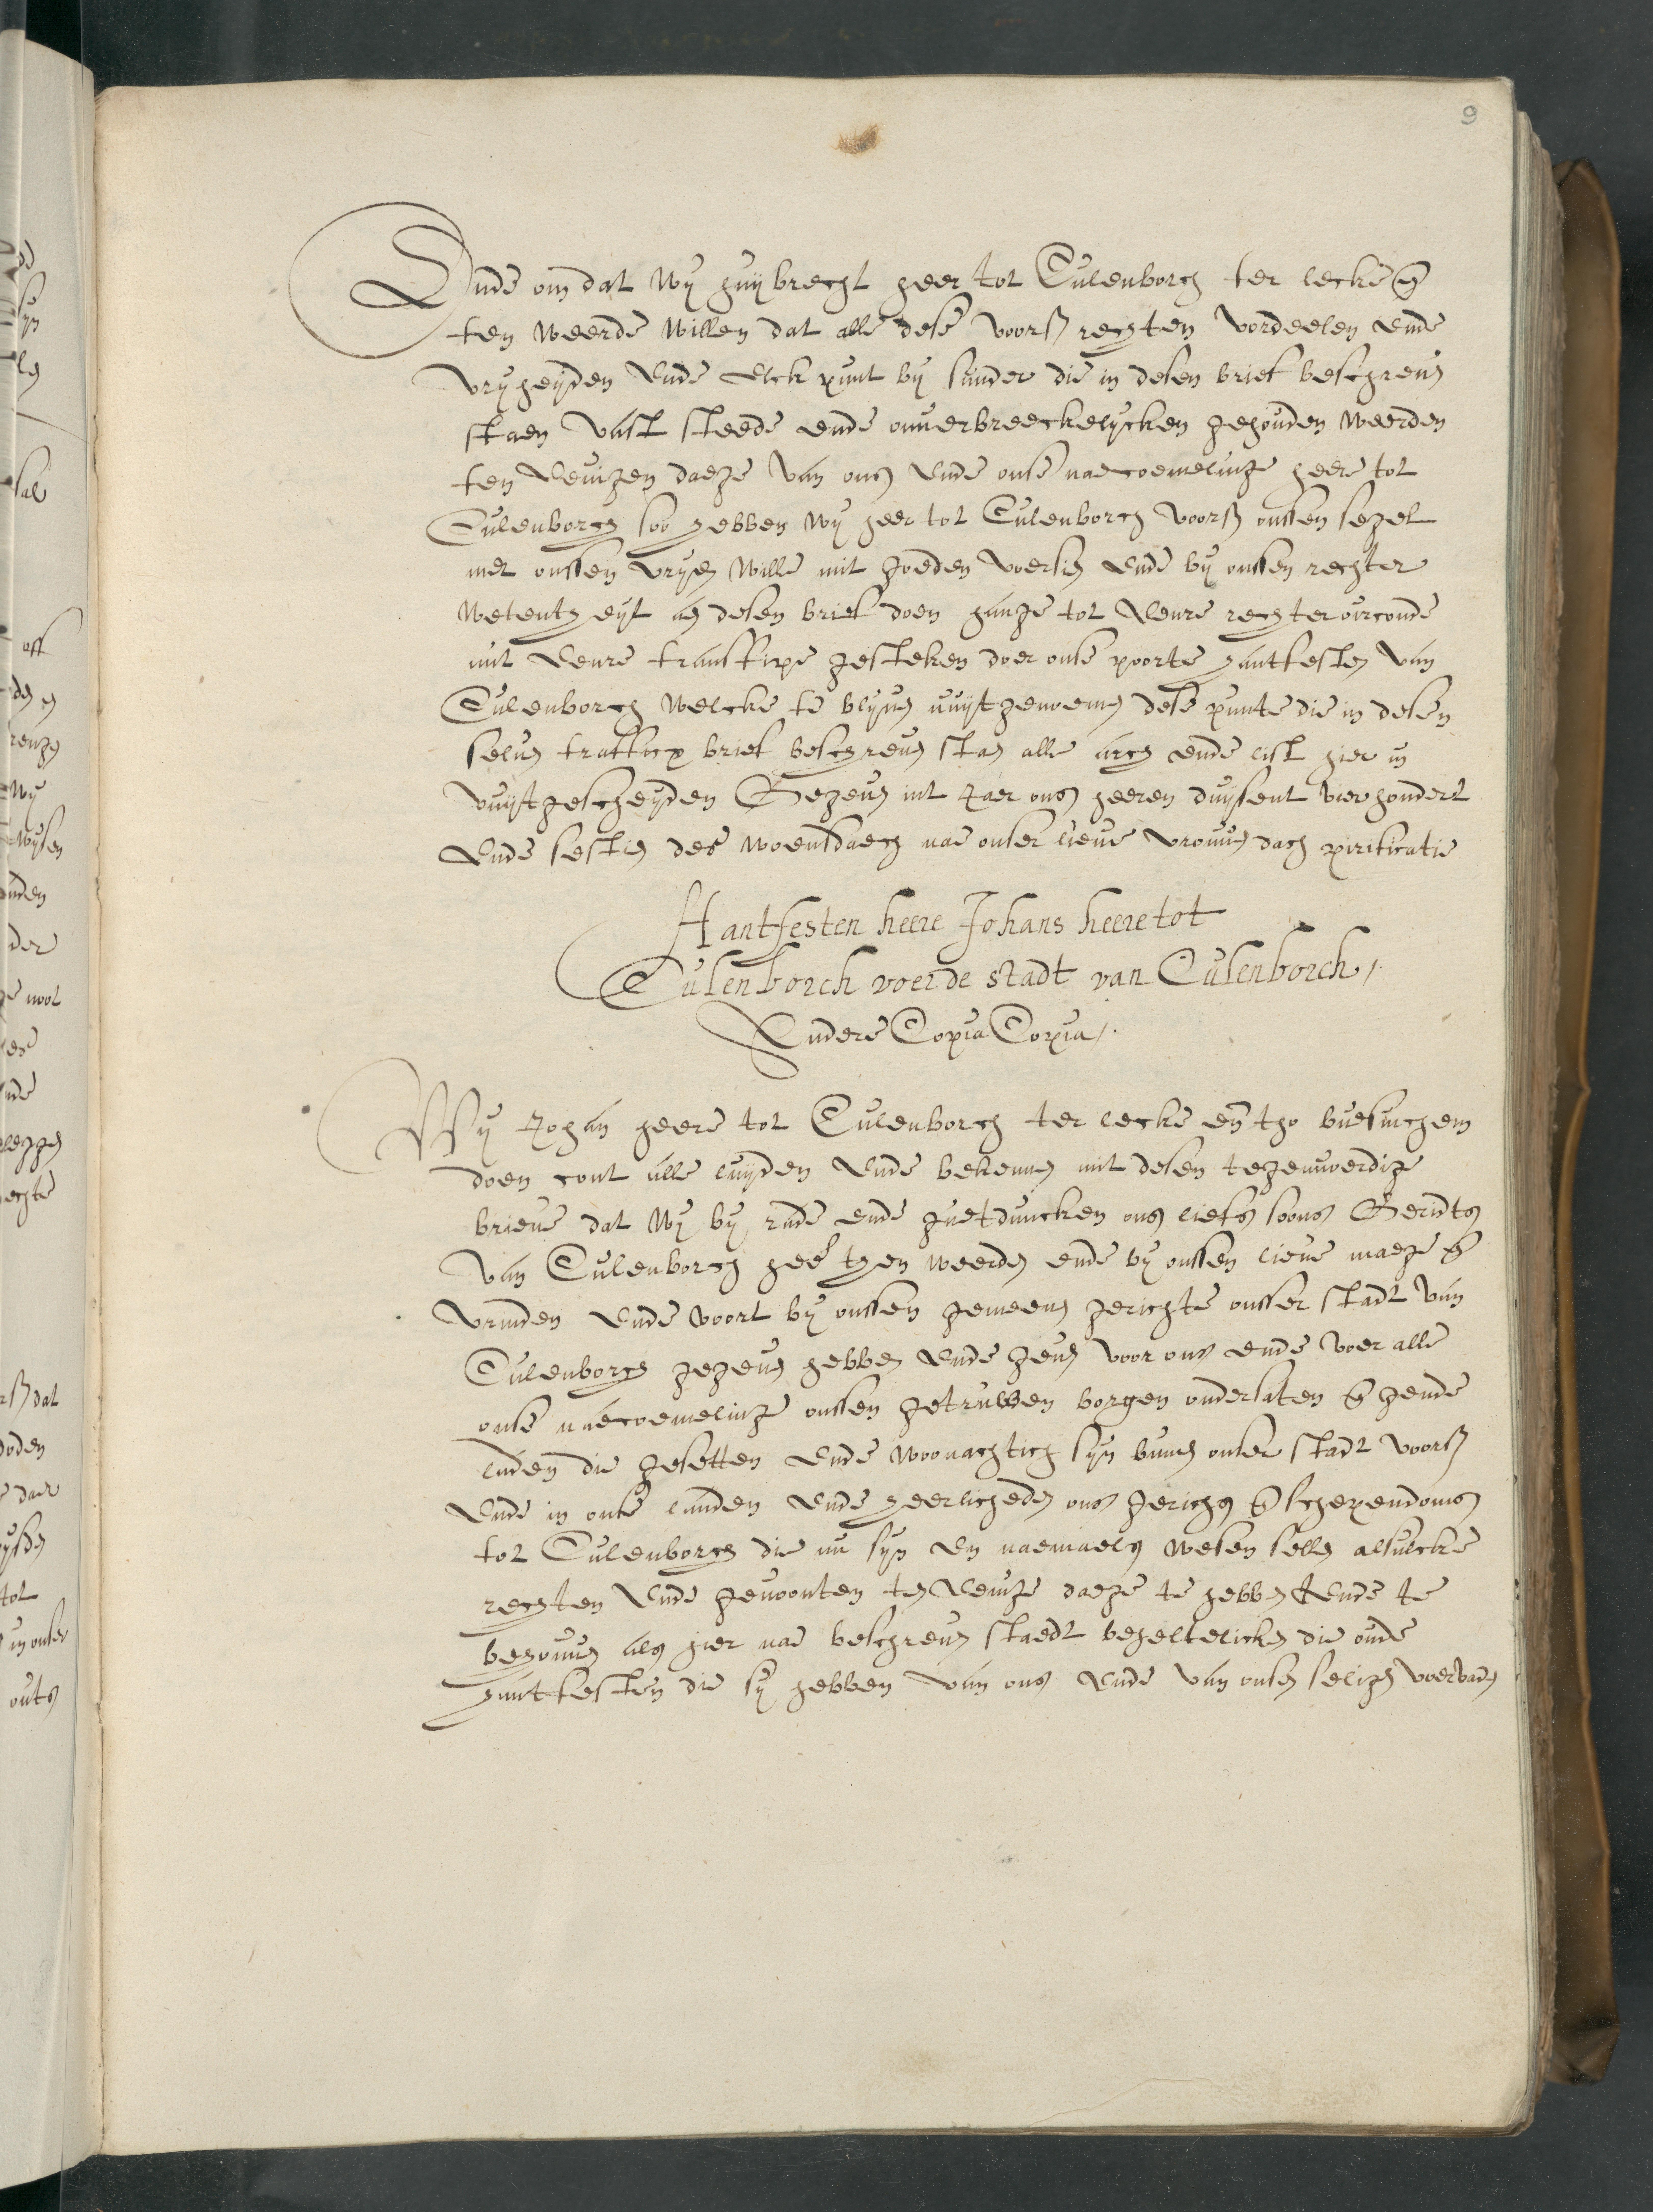 9
Ende om dat wy huijbrecht heer tot Culenborch ter lecke en̄
ten weerde willen dat alle dese voors rechten vordeelen ende
vryheijden ende elck punt by sunder die in desen brief beschreuen
staen vast steede ende onuerbreeckelycken gehouden weerden
ten ewigen daege van ons ende onse naecoemelinge heere tot
Culenborch soo hebben wy heer tot Culenborch voors onssen segel
met onssen vryen wille mit goeden voersien ende by onssen rechter
wetentheyt aen desen brief doen hange tot eenre rechter oirconde
mit eenre transfixe gesteken doer onse poorte hantfesten van
Culenborch welcke te blyuen uuytgenoemen dese punte die in desen
seluen traffixs brief beschreuen staen alle arch ende list hier in
vuytgescheyden Gegeuen int Jaer ons heeren duysent vierhondert
ende sestien des woensdaech nae onser lieue vrouwen dach purificatie
Hantfesten heere Johans heere tot
Culenborch voer de stadt van Culenborch,
Andere Copia Copia,
Wy Johan heere tot Culenborch ter lecke en̄ tho buesinchem
doen cont alle luyden ende bekennen mit desen tegenwoerdige
brieue dat wy by rade ende guetduncken ons liefs soons Gerardts
van Culenborch heer then weerden ende by onssen lieue maege en̄
vrunden ende voort by onssen gemeenen gerichte onsser stadt van
Culenborch gegeuen hebben ende geuen voor ons ende voer alle
onse naecoemelinge onssen getruwen borgen ondersaten en̄ hende
luden die gesetten ende woonachtich syn bynnen onser stadt voors
ende in onse landen ende heerlicheden ons gerichs en̄ schependoms
tot Culenborch die nu syn en naemaels wesen sellen alsulcke
rechten ende gewoonten ten ewige daege te hebben ende te
behouwen als hier nae beschreuen staedt beheltelicken die oude
hantfesten die sy hebben van ons ende van onsen seligen voervaders